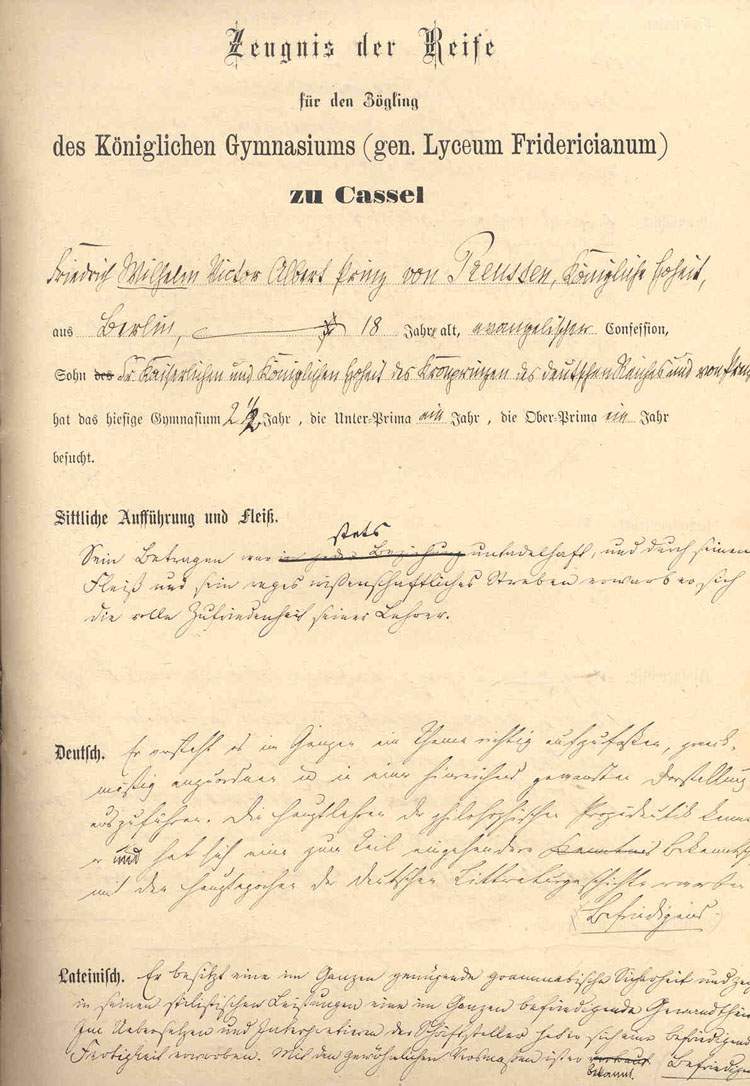 Zeugnis der Reife
für den Zögling
des Königlichen Gymnasiums (gen. Lyceum Fridericianum)
zu Cassel
Friedrich Wilhelm Victor Albert Prinz von Preussen, Königliche Hoheit,
aus Berlin, 18 Jahre alt, evangelischer Confession,
Sohn des Sr. Kaiserlichen und Königlichen Hoheit des Kronprinzen des deutschen Reiches und von Preu
hat das hiesige Gymnasium 2 1/2 Jahr, die Unter-Prima ein Jahr, die Ober-Prima ein Jahr
besucht.
Sittliche Aufführung und Fleiß.
stets
Sein Betragen war in jeder Beziehung untadelhaft, und durch seinen
Fleiß und sein reges wissenschaftliches Streben erwarb er sich
die volle Zufriedenheit seiner Lehrer.
Deutsch. Er versteht es im Ganzen ein Thema richtig aufzufassen, zweck-
mäßig anzuordnen und in einer hinreichend gewandten Darstellung
auszuführen. Die Hauptlehren der philosophischen Propädeutik kennt
er und hat sich eine zum Teil eingehendere Kenntnis Bekanntsch
mit den Hauptepochen der deutschen Litteraturgeschichte erworben
Befriedigend.
Lateinisch. Er besitzt eine im Ganzen genügende grammatische Sicherheit und zeig
in seinen stilistischen Leistungen eine im Ganzen befriedigende Gewandtheit
Im Uebersetzen und Interpretieren der Schriftsteller hat er sich eine befriedigende
Fertigkeit erworben. Mit den gewöhnlichen Versmaßen ist er vertraut (Befriedigend
bekannt.